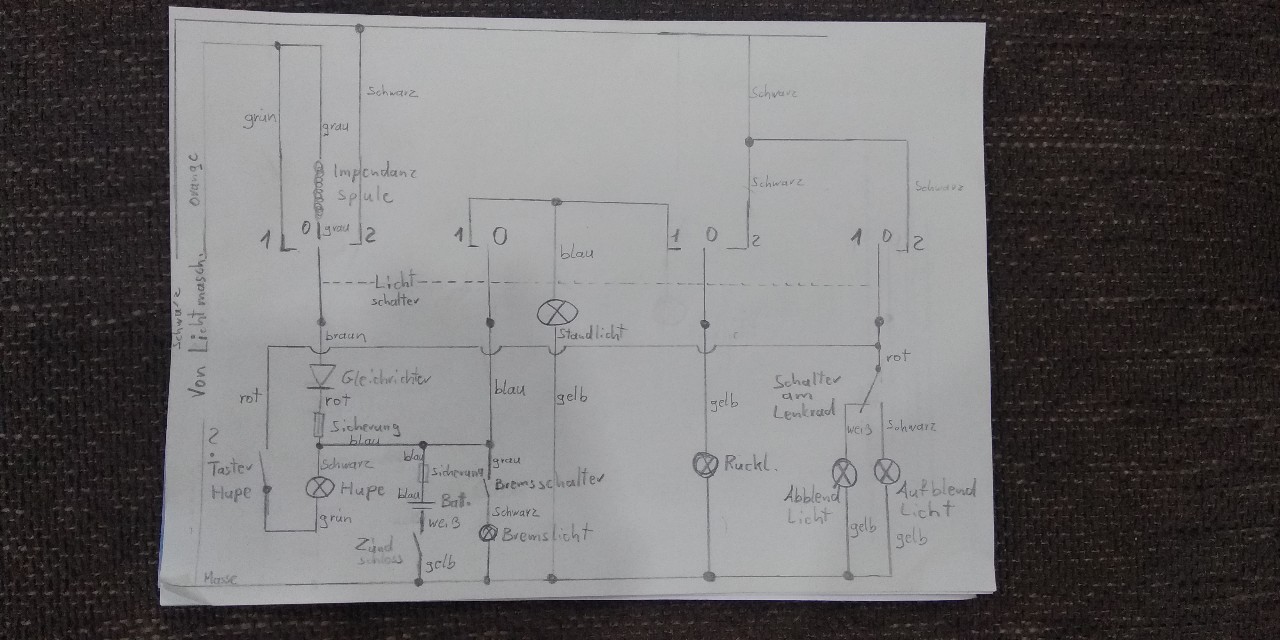 Schwarz
Schwarz
grün
grau
Impendanz
spule
Schwarz
Schwarz
orange
1
0
grau
2
1
0
blau
1
0
2
1
0
2
Licht
schalter
Schwarz
Von Lichtmasch.
braun
Standlicht
rot
Gleichrichter
rot
blau
gelb
gelb
Schalter
am
Lenkrad
rot
Sicherung
blau
weiß
Schwarz
?
Taster
Hupe
Schwarz
Hupe
grün
blau
Sicherung
blau
Batt.
weiß
grau
Bremsschalter
Schwarz
Bremslicht
Rückl.
Abblend
Licht
Aufblend
Licht
Zünd
schloss
gelb
gelb
gelb
Masse